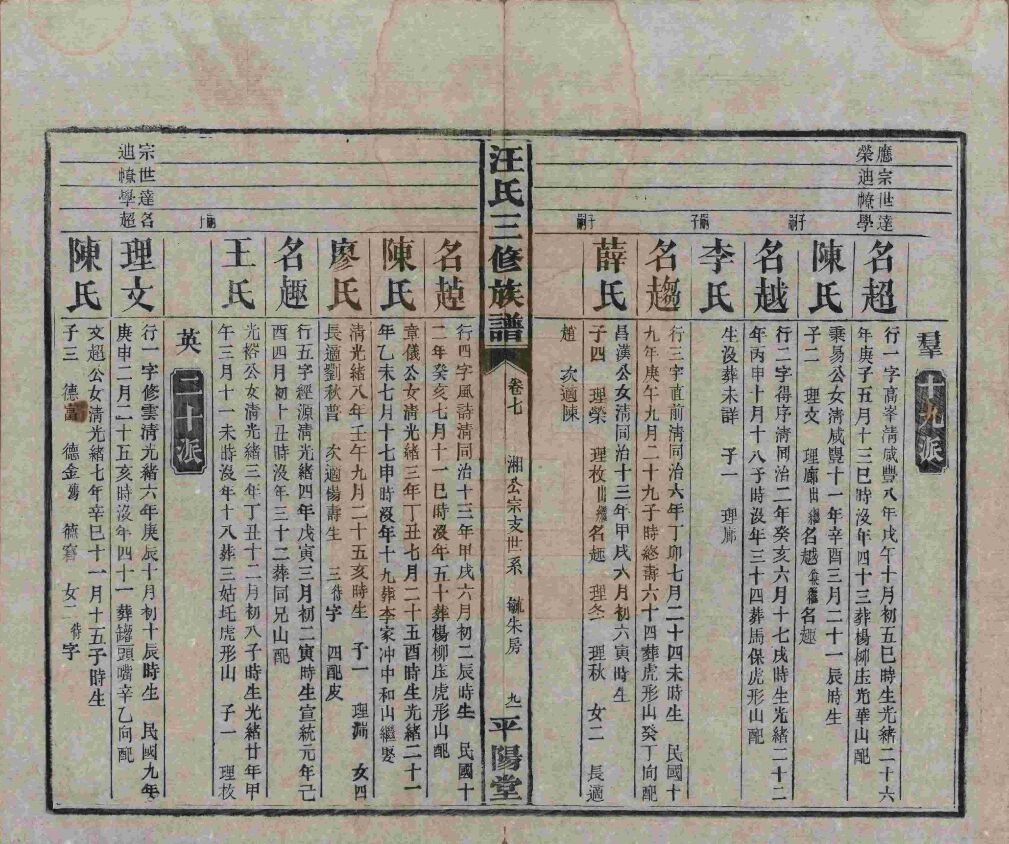 羣 十九派
應宗世達
榮迪幒學
名超 行一字高峯清咸豐八年戊午十月初五巳時生光緒二十六
年庚子五月十三巳時沒年四十三葬楊柳庄光華山配
陳氏 秉易公女清咸豐十一年辛酉三月二十一辰時生
子二 理文 理廊出繼名越 兼繼名趣
子嗣
名越 行二字得序清同治二年癸亥六月十七戌時生光緒二十二
年丙申十月十八子時沒年三十四葬馬保虎形山配
李氏 生沒葬未詳 子一 理廊
嗣子
名趨 行三字直前清同治六年丁卯七月二十四未時生 民國十
九年庚午九月二十九子時終壽六十四葬虎形山癸丁向配
薛氏 昌漢公女清同治十三年甲戌六月初六寅時生
子四 理榮 理枚出繼名趣 理冬 理秋 女二 長適
趙 次適陳
子嗣
汪氏三修族譜 卷七 湘公宗支世系 毓朱房 九一 平陽堂
名趕 行四字風詩清同治十三年甲戌六月初二辰時生 民國十
二年癸亥七月十一巳時沒年五十葬楊柳庄虎形山配
陳氏 章儀公女清光緒三年丁丑七月二十五酉時生光緒二十一
年乙未七月十七申時沒年十九葬李家冲中和山繼娶
廖氏 清光緒八年壬午九月二十五亥時生 子一 理湍 女四
長適劉秋普 次適楊壽生 三待字 四配皮
名趣 行五字經源清光緒四年戊寅三月初二寅時生宣統元年己
酉四月初十丑時沒年三十二葬同兄山配
王氏 光裕公女清光緒三年丁丑十二月初八子時生光緒廿年甲
午三月十一未時沒年十八葬三姑圫虎形山 子一 理枚
英 二十派
宗世達名
迪幒學超
理文 行一字修雲清光緒六年庚辰十月初十辰時生 民國九年
庚申二月二十五亥時沒年四十一葬罐頭嘴辛乙向配
陳氏 文超公女清光緒七年辛巳十一月十五子時生
子三 德富 德金殤 德賽 女一待字